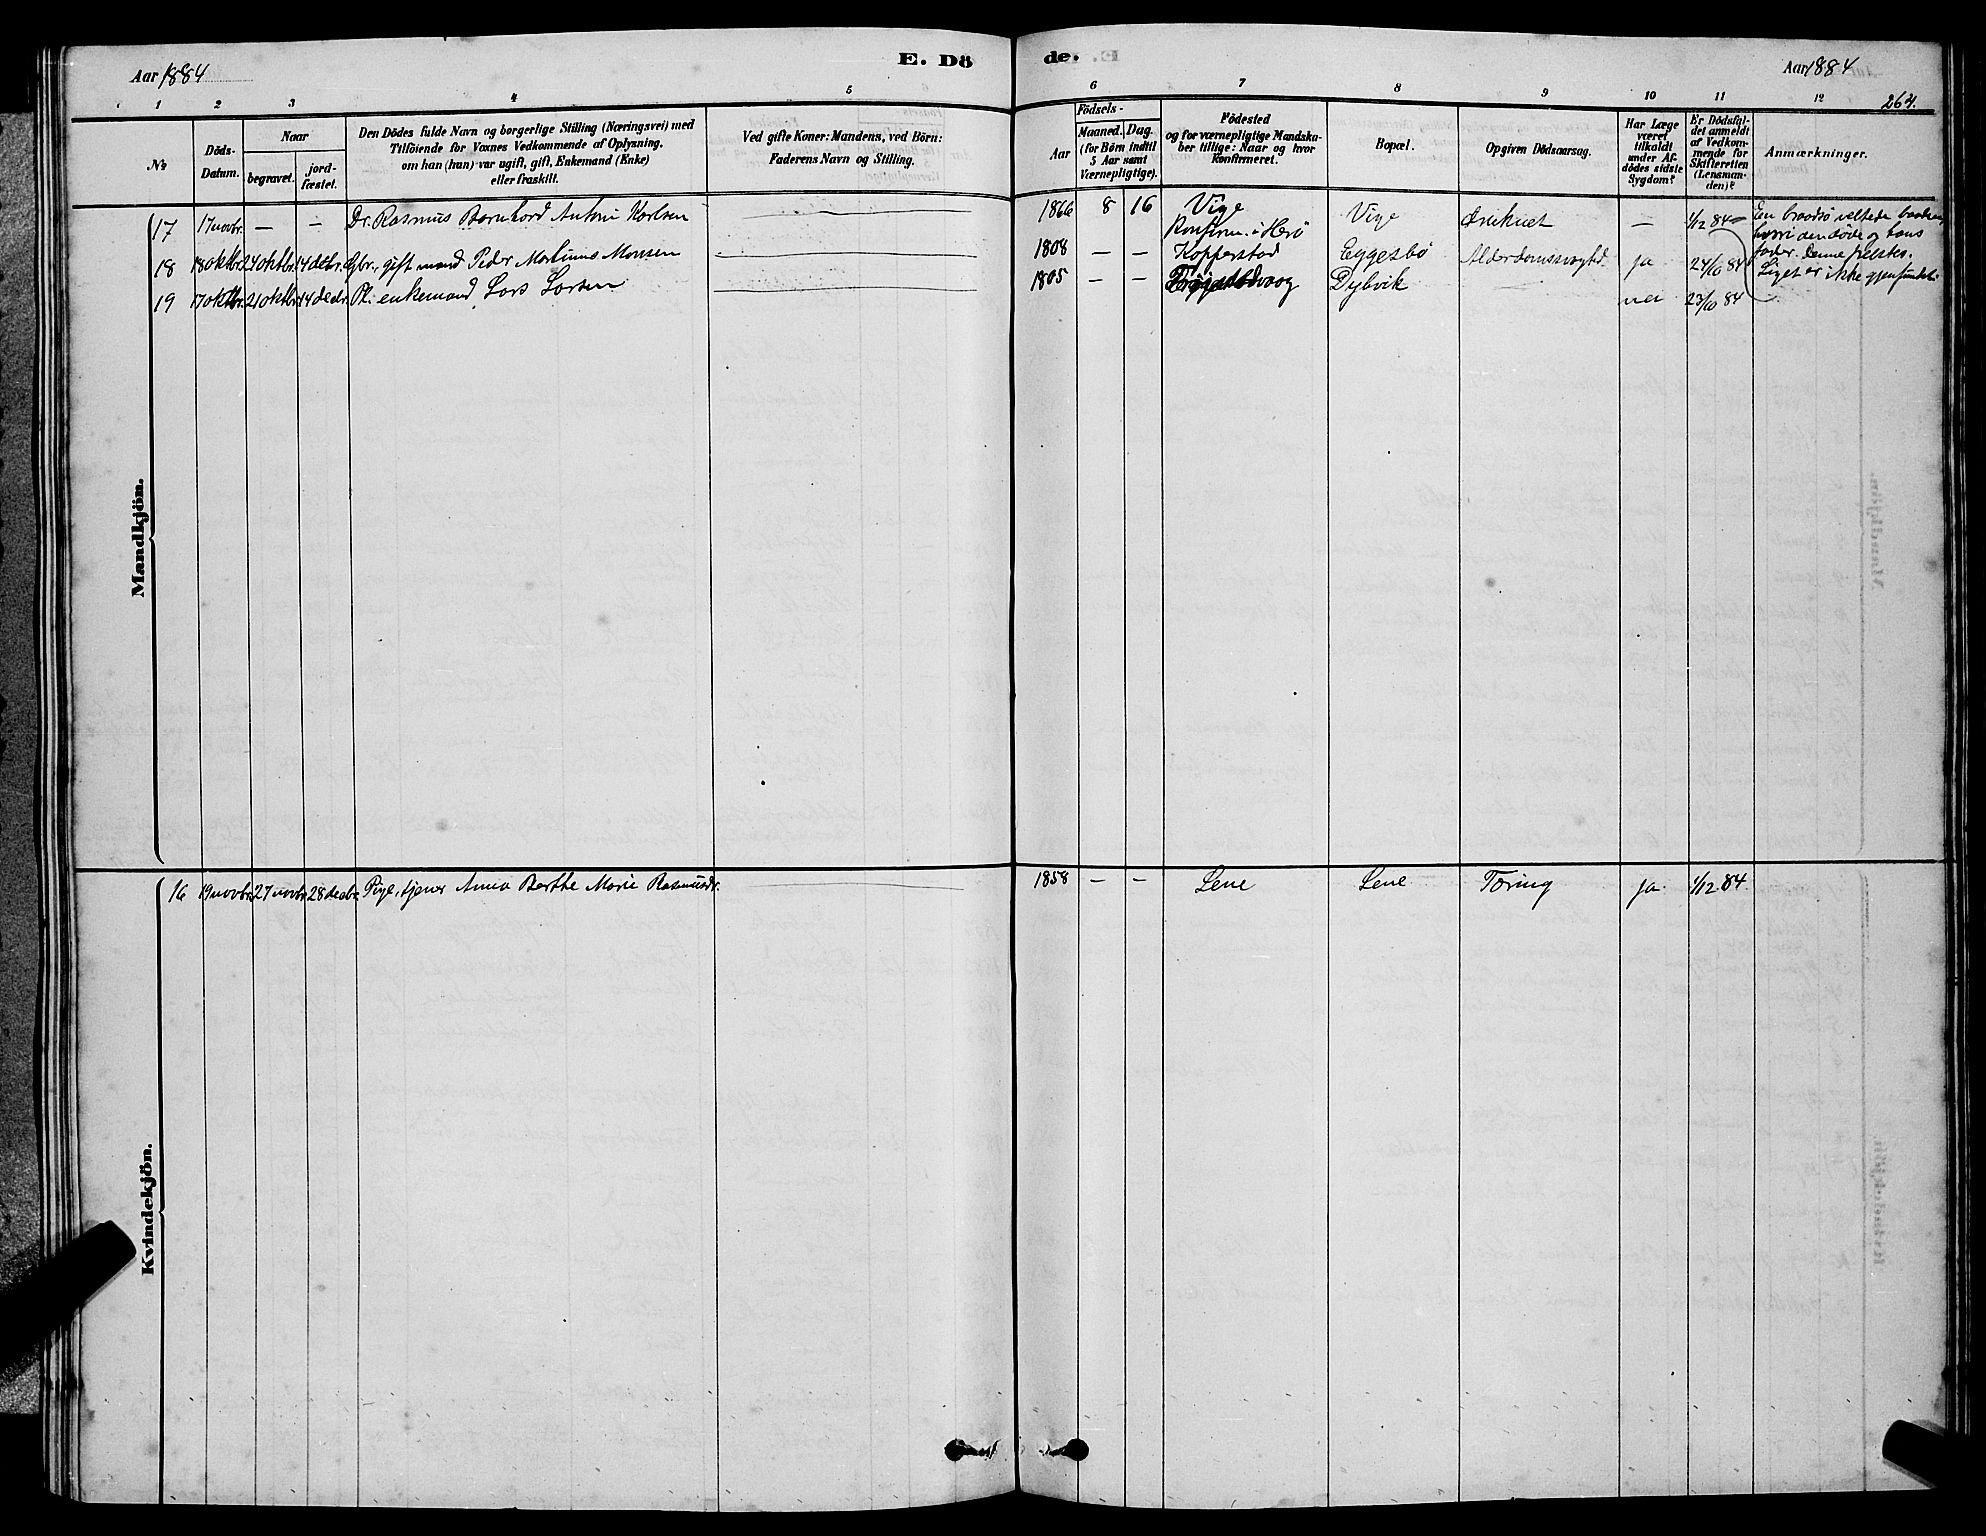 Aar 1884
E. Dö
de.
Aar 1884
264.
1 2 3 4 5 6 7 8 9 10 11 12
No
Döds-
Datum.
Naar
begravet.
jord-
fæstet.
Den Dödes fulde Navn og borgerlige Stilling (Næringsvei) med
Tilföiende for Voxnes Vedkommende af Oplysning,
om han (hun) var ugift, gift, Enkemand (Enke)
eller fraskilt.
Ved gifte Koner: Mandens, ved Börn:
Faderens Navn og Stilling.
Födsels-
Aar
Maaned. Dag.
(for Börn indtil
5 Aar samt
Værnepligtige).
Födested
og for værnepligtige Mandska-
ber tillige: Naar og hvor
Konfirmeret.
Bopæl.
Opgiven Dödsaarsag.
Har Læge
været
tilkaldt
under Af-
dödes sidste
Sygdom?
Er Dödsfal-
det anmeldt
af Vedkom-
mende for
Skifteretten
(Lensman-
den)?
Anmærkninger.
Mandkjön.
17 17 novbr. — — Dr. Rasmus Bernhard Anton Karlsen 1866 8 16 Vige Vige Druknet — 1/12 84
Konfirm. i Herö
En braadsø veltede baaden
hvori den døde og hans
fader. Denne frelstes.
Liget er ikke gjenfundet.
18 18 oktbr. 24 oktbr. 14 decbr. Gbr., gift mand Peder Martinus Monsen 1808 — — Kopperstad Eggesbø Alderdomssvaghed. ja 24/10 84
19 17 oktbr. 21 oktbr. 14 decbr. Pl. enkemand Lars Larsen 1805 — — Dybvik nei 23/10 84
Kvindekjön.
16 19 novbr. 27 novbr. 28 decbr. Pige, tjener Anna Berthe Marie Rasmusdr. 1858 — — Lene Lene Tæring ja 1/12 84